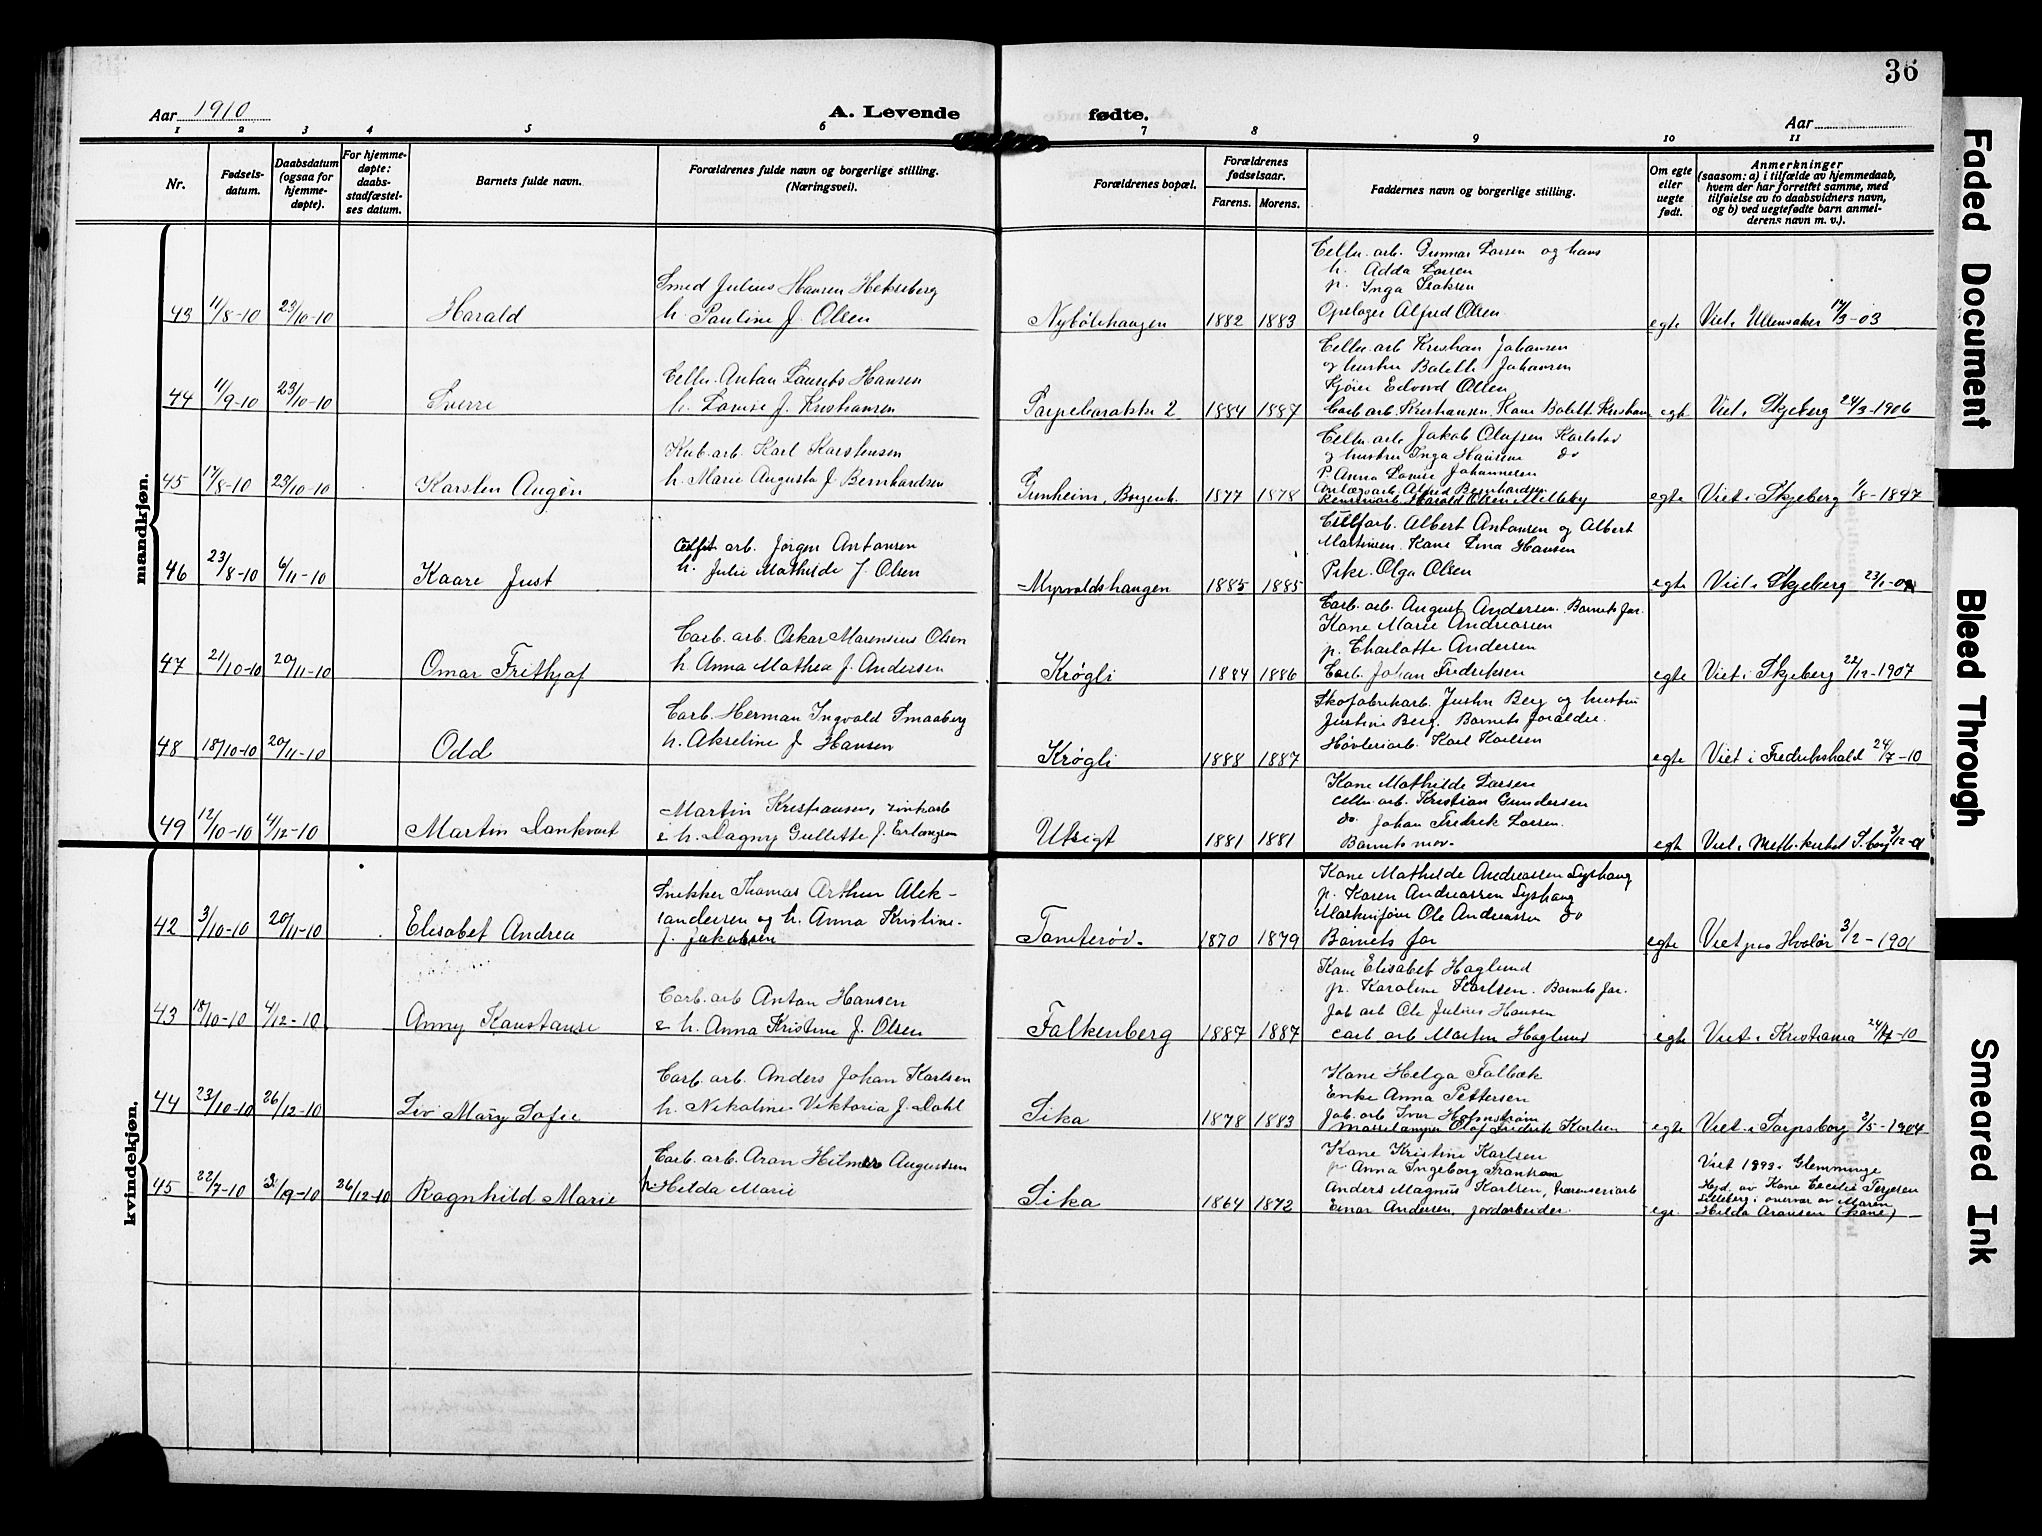 36
Aar 1910
A. Levende fødte.
Aar
1 2 3 4 5 6 7 8 9 10 11
Nr.
Fødsels-
datum.
Daabsdatum
(ogsaa for
hjemme-
døpte).
For hjemme-
døpte:
daabs-
stadfæstel-
ses datum.
Barnets fulde navn.
Forældrenes fulde navn og borgerlige stilling.
(Næringsvei).
Forældrenes bopæl.
Forældrenes
fødselsaar.
Farens. Morens.
Faddernes navn og borgerlige stilling.
Om egte
eller
uegte
født.
Anmerkninger
(saasom: a) i tilfælde av hjemmedaab,
hvem der har forrettet samme, med
tilføielse av to daabsvidners navn,
og b) ved uegtefødte barn anmel-
derens navn m. v.).
mandkjøn.
43 11/8-10 23/10-10 Harald
Smed Julius Hansen Hekseberg
h. Pauline J. Olsen
Nybölehaugen 1882 1883
Cellu. arb. Gunnar Larsen og hans
h. Adda Larsen
p. Inga Isaksen
Opslager Alfred Olsen
egte Viet i Ullensaker 17/3-03
44 11/9-10 23/10-10 Sverre
Cellu. Anton Laurits Hansen
h. Lovise J. Kristiansen
2 1884 1887
Cellu. arb Kristian Johansen
og hustru Bolette Johansen
Kjører Edvard Olsen
Carb. arb. Kristiansen. Kone Bolett Kristians
egte Viet i Skjeberg 24/3-1906
45 17/8-10 23/10-10 Karsten Augón
Kub. arb. Karl Karstensen
h. Marie Augusta J. Bernhardsen
Grenheim, Borgenh. 1877 1878
Cellu. arb Jakob Olufsen Karlstad
og hustru Inga Hansen do
P. Anna Lovise Johannesen
Anlægsarb. Alfred Bernhardsen
Harald Olsen Melleby
egte Viet i Skjeberg 1/8-1897
46 23/8-10 6/11-10 Kaare Just
arb. Jørgen Antonsen
h. Julie Mathilde J. Olsen
Myrvoldshaugen 1885 1885
Cellfarb. Albert Antonsen og Albert
Martinsen. Kone Lina Hansen
Pike. Olga Olsen
egte Viet i Skjeberg
47 21/10-10 20/11-10 Omar Frithjof
Carb. arb. Oskar Marensius Olsen
h. Anna Mathea J. Andersen
Krøgli 1884 1886
Carb. arb. August Andersen. Barnets far.
Kone Marie Andreassen
p. Charlotte Andersen
Carb. Johan Fredriksen
egte Viet i Skjeberg 22/12-1907
48 18/10-10 20/11-10 Odd
Carb. Herman Ingvald Smaaberg
h. Akseline J Hansen
Krøgli 1888 1887
Skofabrikarb. Justin Berg og hustru
Justine Berg. Barnets foraldre.
Høvleriarb. Karl Karlsen
egte Viet i Fredrikshald 24/7-10
49 12/10-10 4/12-10 Martin Dankvart
Martin Kristiansen, zinkarb
& h. Dagny Gullette J. Erlangsen
Utsigt 1881 1881
Kone Mathilde Larsen
Cellu. arb. Kristian Gundersen
do. Johan Fredrik Larsen.
Barnets mor.
egte Viet i Meth. kirken S.borg
kvindekjøn.
42 3/10-10 20/11-10 Elisabet Andrea
Snekker Thomas Arthur Alek-
sandersen og h. Anna Kristine
J. Jakobsen
Tomterød. 1870 1879
Kone Mathilde Andreassen Lyshaug
p. Karen Andreassen Lyshaug
Ole Andreassen do
Barnets far
egte Viet paa Hvaler 3/2-1901
43 18/10-10 4/12-10 Anny Konstanse
Carb. arb Anton Hansen
& h. Anna Kristine J. Olsen
Falkenberg 1887 1887
Kone Elisabet Haglund
p. Karoline Karlsen. Barnets far.
Fab arb Ole Julius Hansen
Carb arb Martin Haglund
egte Viet i Kristiania 24/7-10
44 23/10-10 26/12-10 Liv Mary Sofie
Carb. arb. Anders Johan Karlsen
h. Nikoline Viktoria J. Dahl
Sika 1878 1883
Kone Helga Falbæk
Enke Anna Pettersen
Fab. arb Ivar Holmstrøm
Olaf Fredrik Karlsen
egte Viet i Sarpsborg 3/5-1904
45 22/7-10 3/9-10 26/12-10 Ragnhild Marie
Carb. arb. Aron Hilmer Augustsen
h. Hilda Marie
Sika 1864 1872
Kone Kristine Karlsen
p. Anna Ingeborg
Anders Magnus Karlsen,
Einar Andersen, jordarbeider.
egt. Viet 1893 i Glemminge
Hjd. av Kone Cecilie Terjesen
Lilleberg i overvær av Maren
Hilda Aronsen (kone)
Faded Document
Bleed Through
Smeared Ink